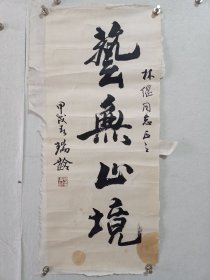 林偃同志正之
藝無止境
甲戌春 瑞龄